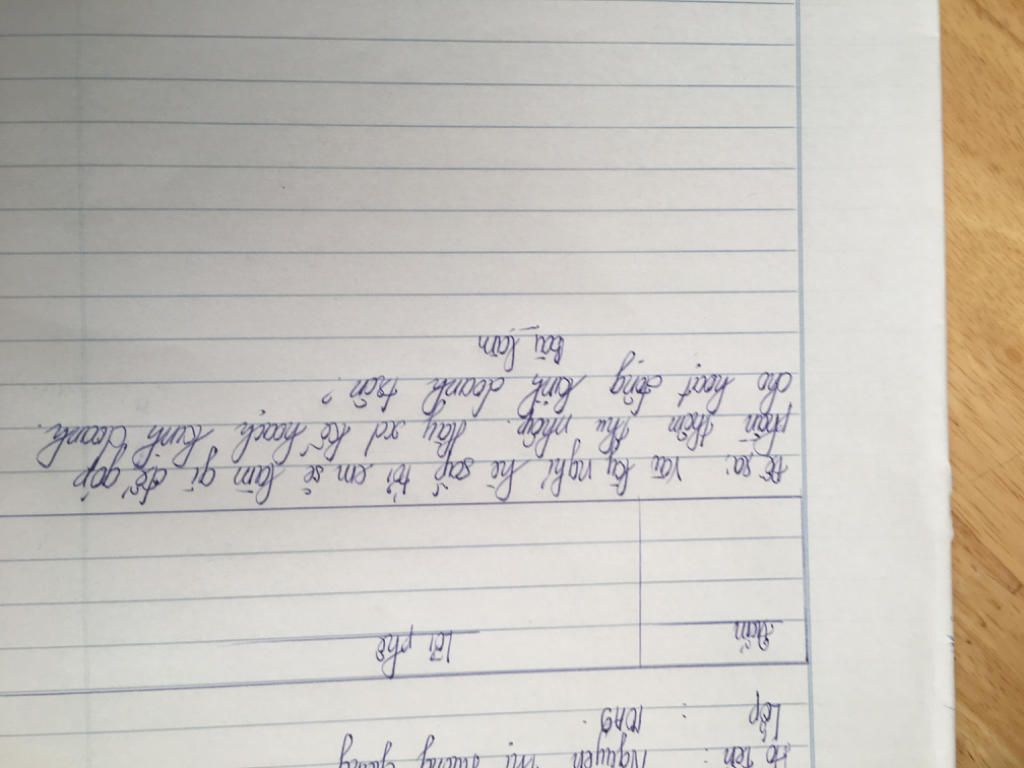 Họ tên : Nguyễn Thị Hương Giang
Lớp : 10A9
Điểm
Lời phê
Đề ra: Vào kỳ nghỉ hè sắp tới em sẽ làm gì để góp
phần thêm thu nhập. Hãy xd kế hoạch kinh doanh.
cho hoạt động kinh doanh trên?
Bài làm